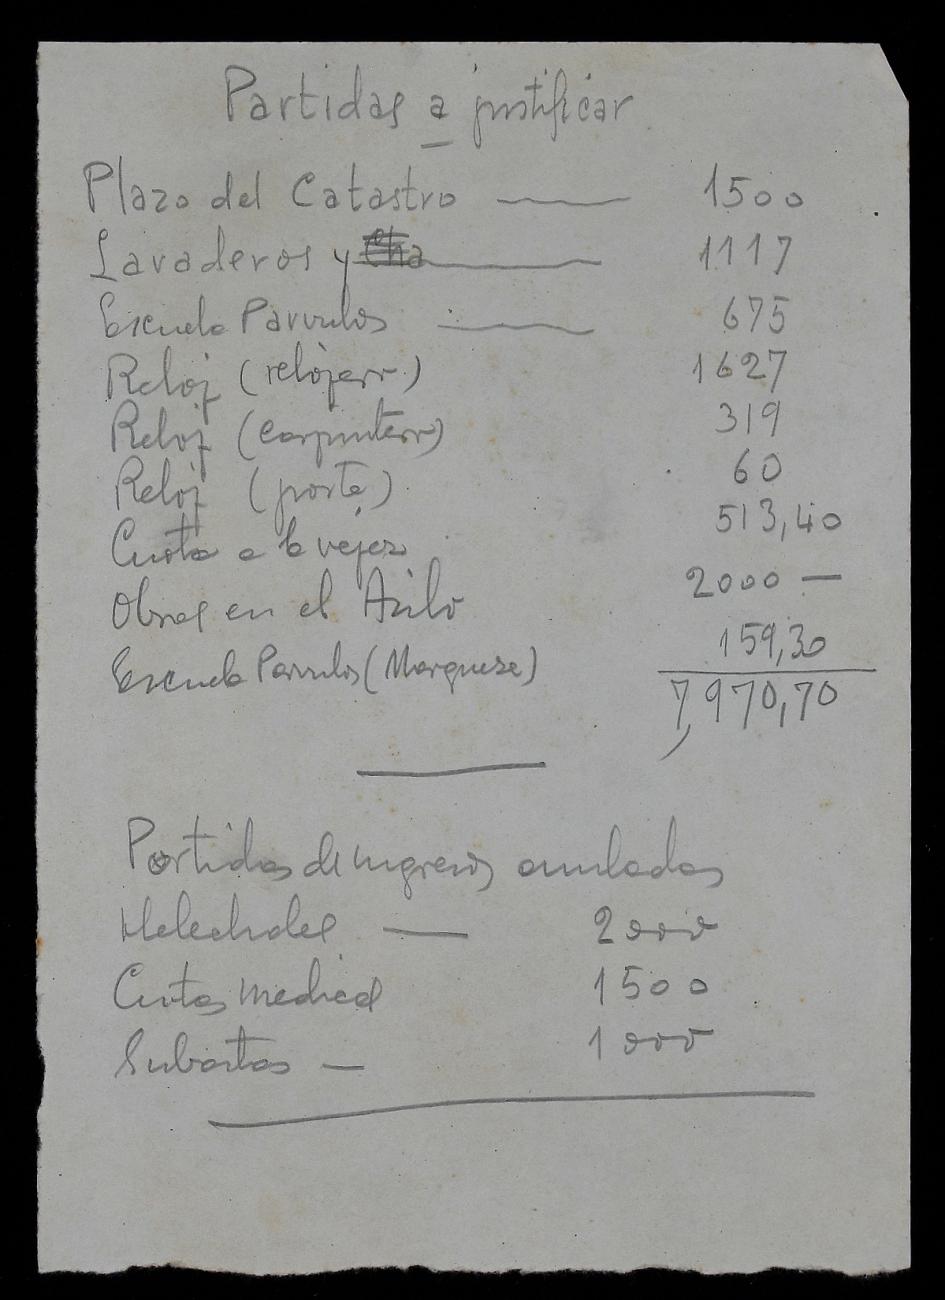 Partidas a justificar
Plazo del Catastro — 1500
Lavaderos y — 1117
Escuela Parvulos — 675
Reloj (relojero) 1627
Reloj (carpintero) 319
Reloj (porte) 60
Cuota a la vejez 513,40
Obras en el Asilo 2000 —
Escuela Parvulos (Marquese) 159,30
7,970,70
Partidas de ingresos anuladas
Helechales — 2000
Cuotas medicas 1500
Subastas — 1000